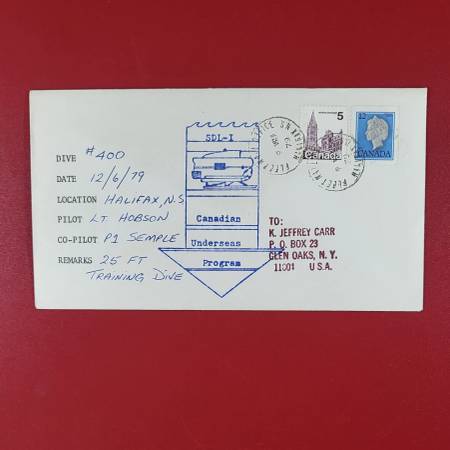 DIVE #400
DATE 12/6/79
LOCATION HALIFAX, N.S
PILOT LT. HOBSON
CO-PILOT P1 SEMPLE
REMARKS 25 FT
TRAINING DIVE
SDL-I
Canadian
Underseas
Program
5
Canada
12
CANADA
TO:
K. JEFFREY CARR
P. O. BOX 23
GLEN OAKS, N. Y.
11004 U.S.A.